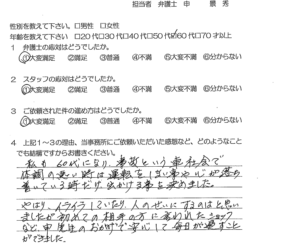 担当者 弁護士 申 景秀
性別を教えて下さい。□男性 □女性
年齢を教えて下さい □20代□30代□40代□50代□60代□70才以上
1 弁護士の応対はどうでしたか。
①大変満足 ②満足 ③普通 ④不満 ⑤大変不満 ⑥分からない
2 スタッフの応対はどうでしたか。
①大変満足 ②満足 ③普通 ④不満 ⑤大変不満 ⑥分からない
3 ご依頼された件の進め方はどうでしたか。
①大変満足 ②満足 ③普通 ④不満 ⑤大変不満 ⑥分からない
4 上記1~3の理由、当事務所にご依頼いただいた感想など、どのようなこと
でも結構ですからお書きください。
私も60代になり、事故という車社会で
体調の悪い時は運転をしない事や心が落ち
着いている時だけ出かける事を決めました。
やはり、イライラしていたり、人のせいにするのはと思い
ましたが初めての相手の方に言われたショック
など、申先生のおかげで安心して毎日が過すこと
ができました。